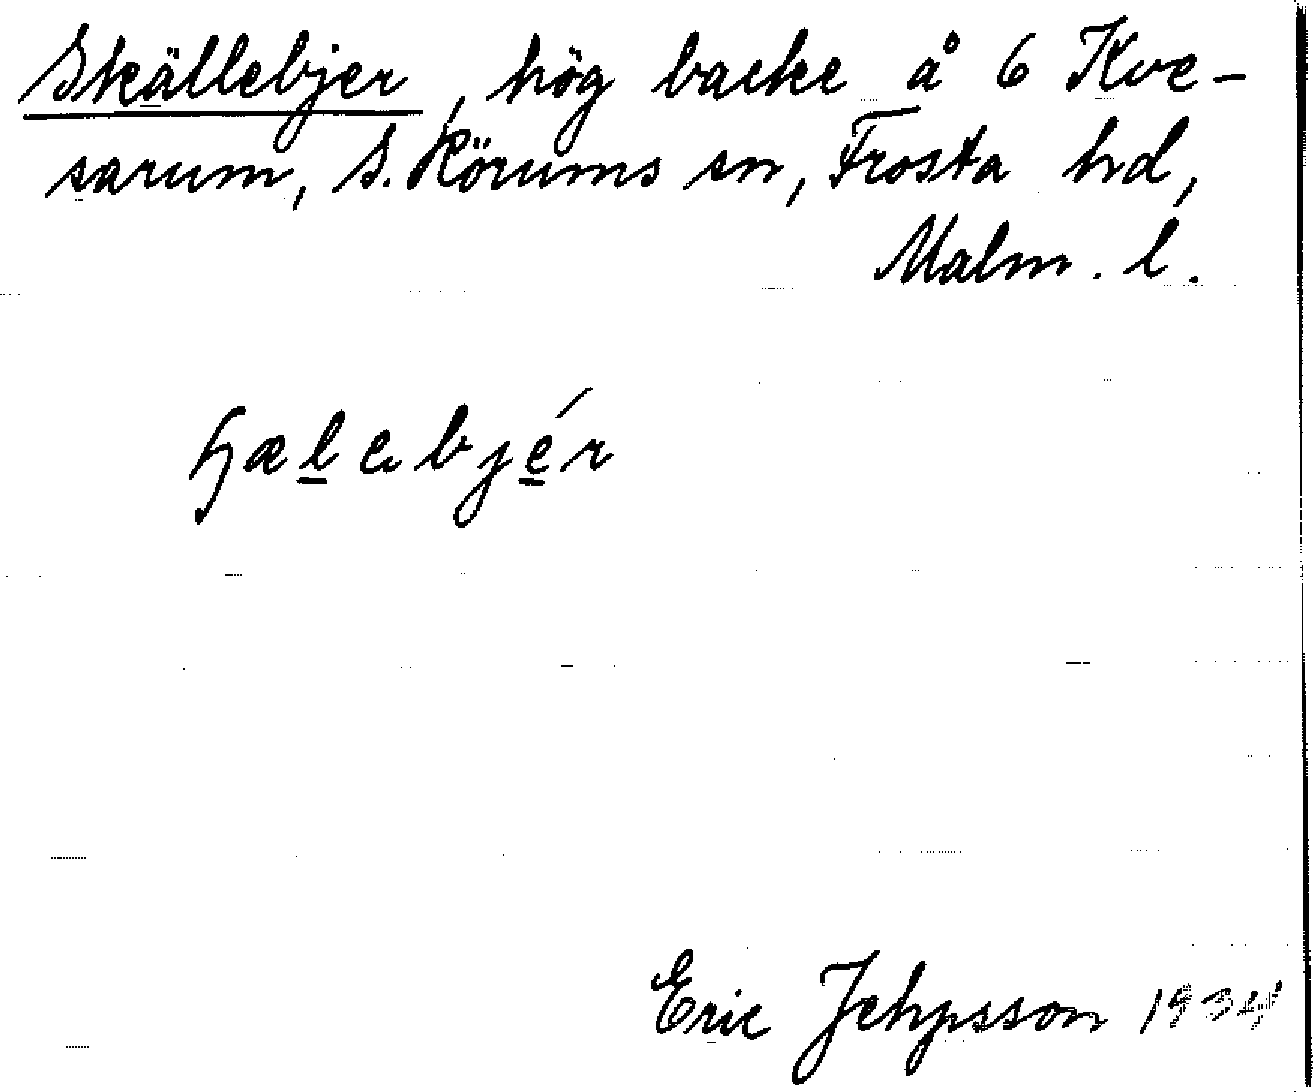 Skällebjer, hög backe å 6 Kve-
sarum, S. Rörums sn, Frosta hd,
Malm. l.
ɧæl̲ebjé̲r
Eric Jehpsson 1934